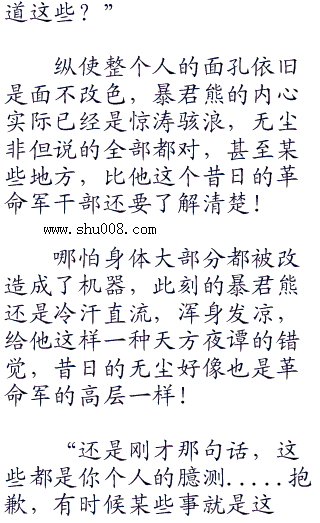 道这些？”
纵使整个人的面孔依旧
是面不改色，暴君熊的内心
实际已经是惊涛骇浪，无尘
非但说的全部都对，甚至某
些地方，比他这个昔日的革
命军干部还要了解清楚！
www.shu008.com
哪怕身体大部分都被改
造成了机器，此刻的暴君熊
还是冷汗直流，浑身发凉，
给他这样一种天方夜谭的错
觉，昔日的无尘好像也是革
命军的高层一样！
“还是刚才那句话，这
些都是你个人的臆测.....抱
歉，有时候某些事就是这